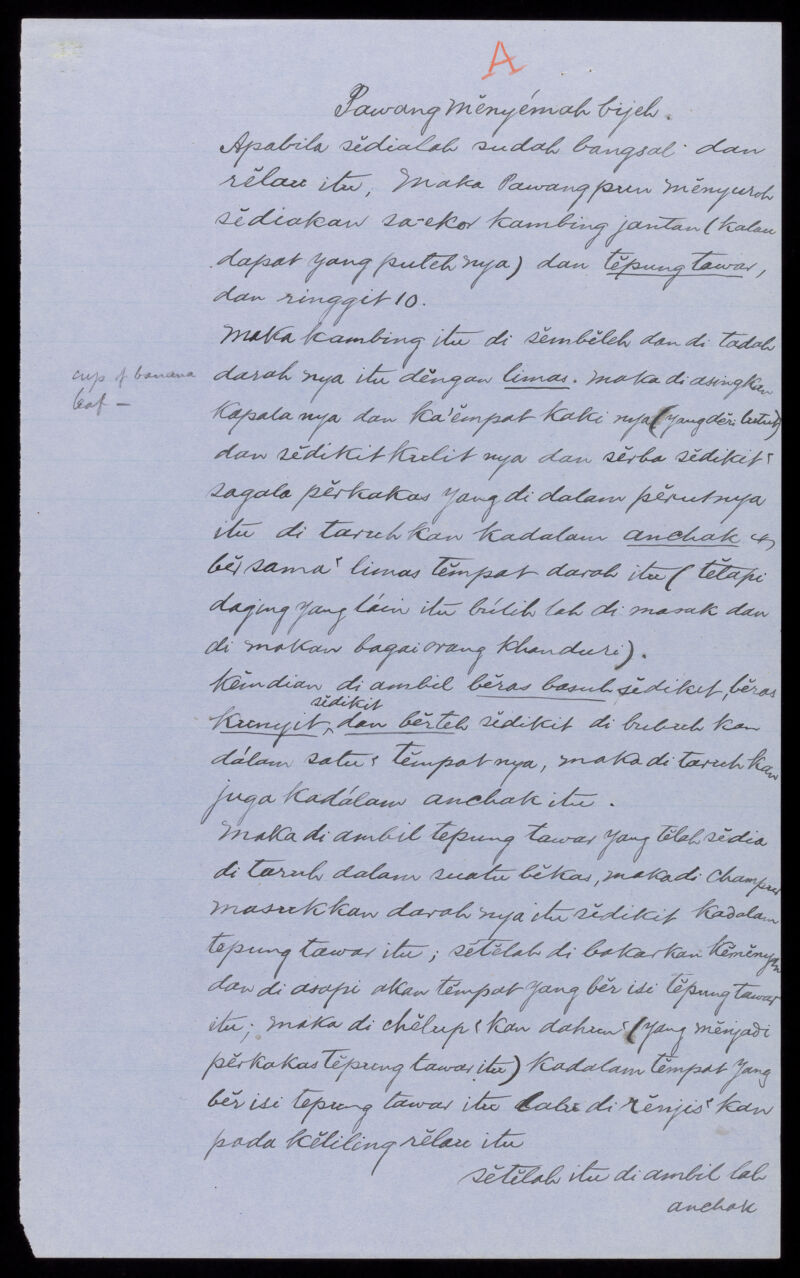 A
Pawang mĕnyémah bijeh.
Apabila sĕdialah sudah bangsal dan
rĕlau itu, maka Pawang pun mĕnyuroh
sĕdiakan sa-ekor kambing jantan (kalau
dapat yang puteh nya) dan tĕpung tawar,
dan ringgit 10.
maka kambing itu di sĕmbĕleh dan di tadah
cup of banana
leaf –
darah nya itu dĕngan limas. maka di asingkan
kapala nya dan ka'ĕmpat kaki nya (yang dĕri lutut)
dan sĕdikit kulit nya dan sĕrba sĕdikit ʻ
sagala pĕrkakas yang di dalam pĕrutnya
itu di taruh kan kadalam anchak
bĕrsama ʻ limas tĕmpat darah itu (tĕtapi
daging yang láin itu búlih lah di masak dan
di makan bagai orang khanduri).
kĕmdian di ambil bĕras basuh sĕdikit, bĕras
kunyit sĕdikit, dan bĕrteh sĕdikit di bubuh kan
dálam satu ʻ tĕmpat nya, maka di taruh kan
juga kadálam anchak itu.
Maka di ambil tepung tawar yang tĕlah sĕdia
di taruh dalam suatu bĕkas, maka di champur
masukkan darah nya itu sĕdikit kadalam
tepung tawar itu; sĕtĕlah di bakarkan kĕmĕnyan
dan di asapi akan tĕmpat yang bĕr isi tĕpung tawar
itu; maka di chĕlup ʻ kan dahun ʻ (yang mĕnjadi
pĕrkakas tĕpung tawar itu) kadalam tĕmpat yang
bĕr isi tepung tawar itu lalu di rĕnjis ʻ kan
pada kĕliling rĕlau itu
sĕtĕlah itu di ambil lah
anchak